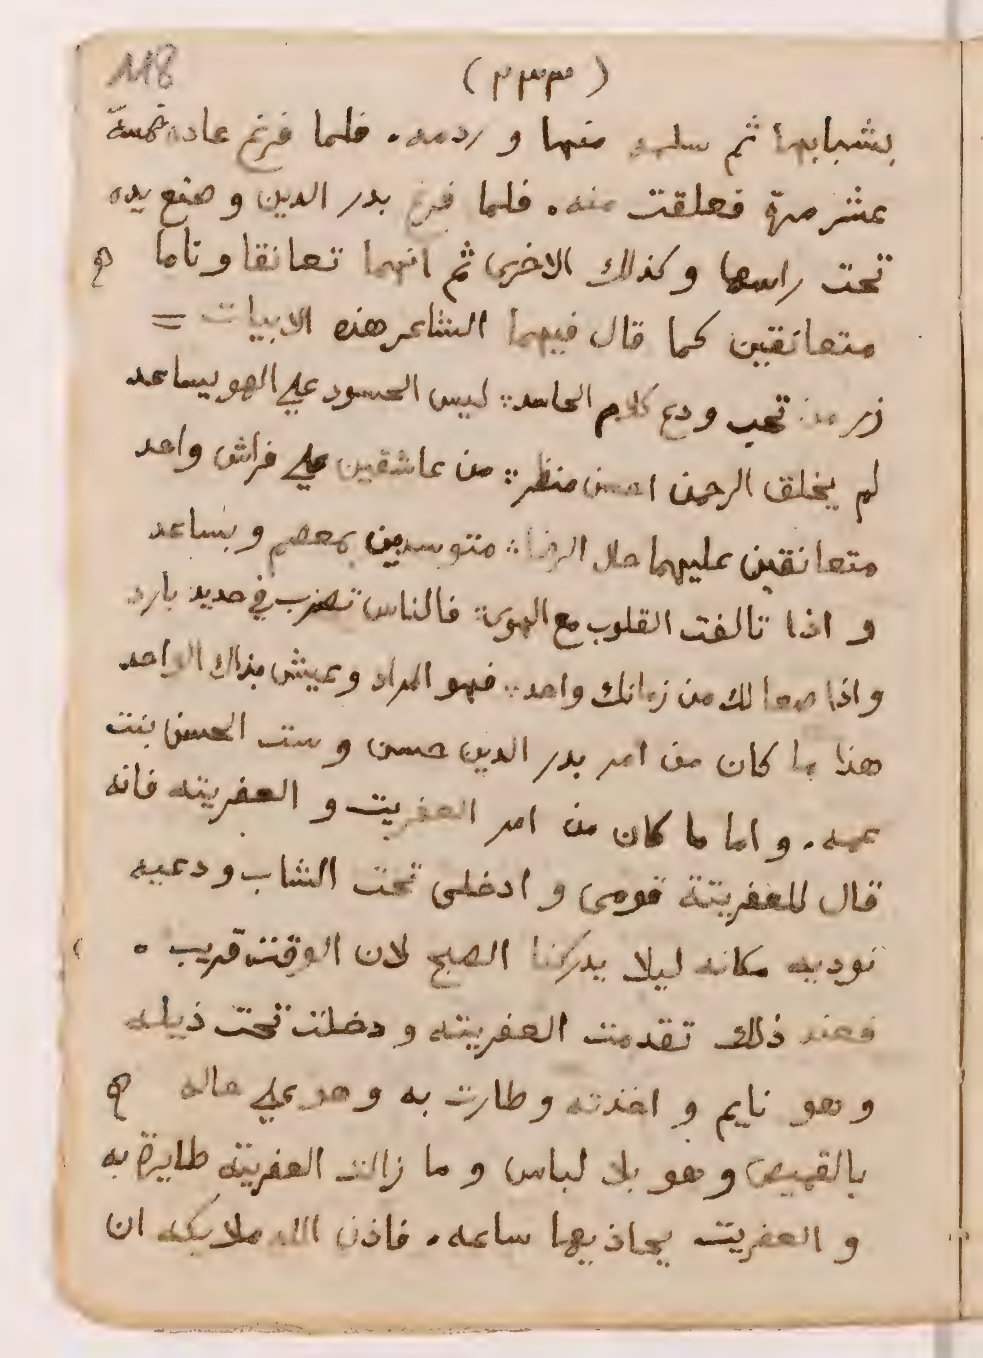 118
(٣٣٣)
بشبابها ثم منها و ردمه. فلما فرغ عاده خمسة
عشر مرة فعلقت منه. فلما فرغ بدر الدين وضع يده
تحت راسها وكذلك الاخرى ثم انهما تعانقا وناما
متعانقين كما قال فيهما الشاعر هذه الابيات =
زر من تحب ودع كلام الحاسد :: ليس الحسود علي الهو يساعد
لم يخلق الرحمن احسن منظر :: من عاشقين علي فراش واحد
متعانقين عليهما حلل الرضا :: متوسدين بمعصم وبساعد
و اذا تالفت القلوب مع الهوى :: فالناس تضرب في حديد بارد
واذا صفا لك من زمانك واحد :: فهو المراد وعيش بذاك الواحد
هذا ما كان من امر بدر الدين حسن و ست الحسن بنت
عمه. و اما ما كان من امر العفريت و العفريته فانه
قال للعفريتة قومى و ادخلى تحت الشاب و دعيه
نوديه مكانه ليلا يدركنا الصبح لان الوقت قريب.
فعند ذلك تقدمت العفريته و دخلت تحت ذيله
و هو نايم و اخذته وطارت به وهو علي حاله
بالقميص و هو بلا لباس و ما زالت العفريته طايرة به
و العفريت يحاذيها ساعه. فاذن الله ملايكه ان